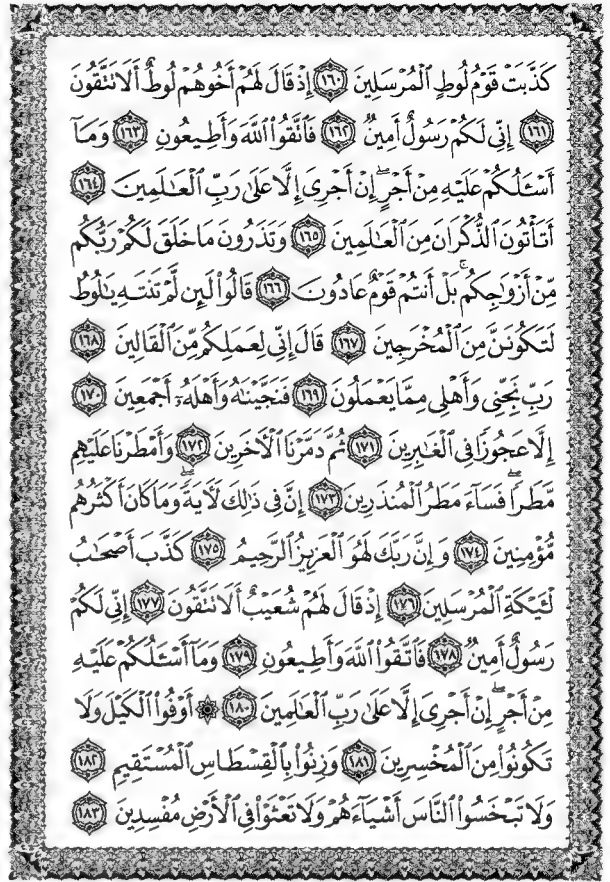 كَذَّبَتْ قَوْمُ لُوطٍ الْمُرْسَلِينَ ﴿١٦٠﴾ إِذْ قَالَ لَهُمْ أَخُوهُمْ لُوطٌ أَلَا تَتَّقُونَ
﴿١٦١﴾ إِنِّي لَكُمْ رَسُولٌ أَمِينٌ ﴿١٦٢﴾ فَاتَّقُوا اللَّهَ وَأَطِيعُونِ ﴿١٦٣﴾ وَمَآ
أَسْـَٔلُكُمْ عَلَيْهِ مِنْ أَجْرٍ ۖ إِنْ أَجْرِىَ إِلَّا عَلَىٰ رَبِّ الْعَـٰلَمِينَ ﴿١٦٤﴾
أَتَأْتُونَ الذُّكْرَانَ مِنَ الْعَـٰلَمِينَ ﴿١٦٥﴾ وَتَذَرُونَ مَا خَلَقَ لَكُمْ رَبُّكُم
مِّنْ أَزْوَٰجِكُم ۚ بَلْ أَنتُمْ قَوْمٌ عَادُونَ ﴿١٦٦﴾ قَالُوا لَئِن لَّمْ تَنتَهِ يَـٰلُوطُ
لَتَكُونَنَّ مِنَ الْمُخْرَجِينَ ﴿١٦٧﴾ قَالَ إِنِّي لِعَمَلِكُم مِّنَ الْقَالِينَ ﴿١٦٨﴾
رَبِّ نَجِّنِي وَأَهْلِي مِمَّا يَعْمَلُونَ ﴿١٦٩﴾ فَنَجَّيْنَـٰهُ وَأَهْلَهُۥٓ أَجْمَعِينَ ﴿١٧٠﴾
إِلَّا عَجُوزًا فِي الْغَـٰبِرِينَ ﴿١٧١﴾ ثُمَّ دَمَّرْنَا الْـَٔاخَرِينَ ﴿١٧٢﴾ وَأَمْطَرْنَا عَلَيْهِم
مَّطَرًا ۖ فَسَآءَ مَطَرُ الْمُنذَرِينَ ﴿١٧٣﴾ إِنَّ فِي ذَٰلِكَ لَـَٔايَةً ۖ وَمَا كَانَ أَكْثَرُهُم
مُّؤْمِنِينَ ﴿١٧٤﴾ وَإِنَّ رَبَّكَ لَهُوَ الْعَزِيزُ الرَّحِيمُ ﴿١٧٥﴾ كَذَّبَ أَصْحَـٰبُ
لْـَٔيْكَةِ الْمُرْسَلِينَ ﴿١٧٦﴾ إِذْ قَالَ لَهُمْ شُعَيْبٌ أَلَا تَتَّقُونَ ﴿١٧٧﴾ إِنِّي لَكُمْ
رَسُولٌ أَمِينٌ ﴿١٧٨﴾ فَاتَّقُوا اللَّهَ وَأَطِيعُونِ ﴿١٧٩﴾ وَمَآ أَسْـَٔلُكُمْ عَلَيْهِ
مِنْ أَجْرٍ ۖ إِنْ أَجْرِىَ إِلَّا عَلَىٰ رَبِّ الْعَـٰلَمِينَ ﴿١٨٠﴾ ۞ أَوْفُوا الْكَيْلَ وَلَا
تَكُونُوا مِنَ الْمُخْسِرِينَ ﴿١٨١﴾ وَزِنُوا بِالْقِسْطَاسِ الْمُسْتَقِيمِ ﴿١٨٢﴾
وَلَا تَبْخَسُوا النَّاسَ أَشْيَآءَهُمْ وَلَا تَعْثَوْا فِي الْأَرْضِ مُفْسِدِينَ ﴿١٨٣﴾